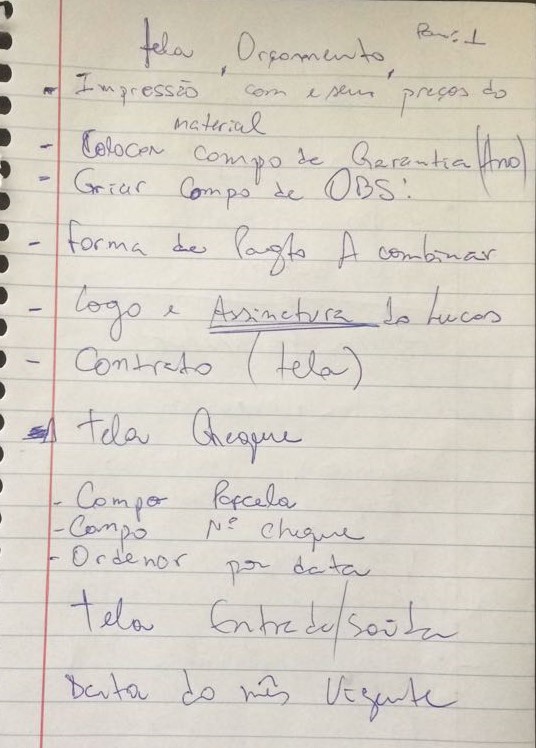 tela Orçamento
- Impressão com e sem preços do
material
- Colocar campo de Garantia (Ano)
- Criar Campo de OBS:
- forma de Pagto A combinar
- Logo e Assinatura do Lucas
- Contrato (tela)
tela Cheque
- Campo Parcela
- Campo Nº Cheque
- Ordenar por data
tela Entrada/Saída
Data do mês Vigente